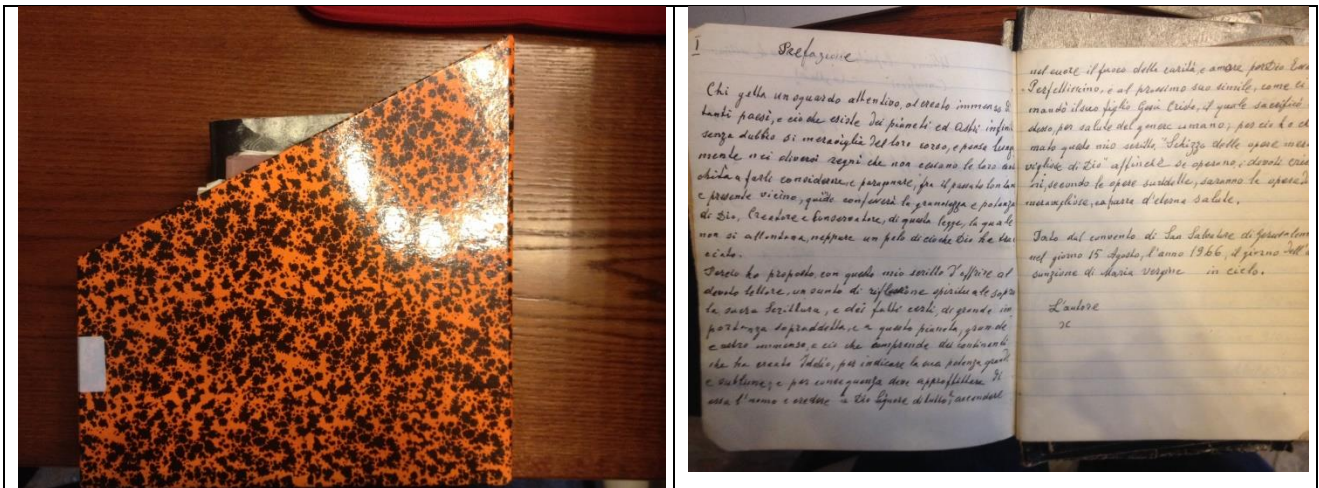 I
Prefazione
Chi getta un sguardo attentivo, al creato immenso. Di
tanti paesi, e ciò che esiste dei pianeti ed astri infini
senza dubbio si meraviglia del loro corso, e pensa lunga
mente nei diversi regni che non escano le loro
a farli considerare, e paragonare, fra il passato lontan
e presente vicino, quide confesserà la grandezza e potenza
di Dio, Creatore e Conservatore, di questa legge, la quale
non si allontana, neppure un pelo di cioche Dio ha trac
ciato.
Perciò ho proposto, con questo mio scritto d'offrire al
devoto lettore, un sunto di riflessione spirituale sopra
la sacra Scrittura, e dei fatti certi, di grande im
portanza sopraddetta, e a questo pianeta, grande
e astro immenso, e ciò che comprende dei continenti
che ha creato Iddio, per indicare la sua potenza grande
e sublime; e per conseguenza deve approffittare di
essa l'uomo e credere a Dio Signore di tutto, accendere
nel cuore il fuoco della carità, e amare
Perfettissimo, e al prossimo suo simile, come
mandò il suo figlio Gesù Cristo, il quale sacrificò
stesso, per salute del genere umano; per ciò ho ch
mato questo mio scritto, "Schizzo delle opere mera
vigliose di Dio" affinchè se operano, i devoti
secondo le opere suddette, saranno le opere
meravigliose, caparra d'eterna salute.
Fatto dal convento di San Salvatore di Gerusalemm
nel giorno 15 Agosto, l'anno 1966, il giorno dell'
sunzione di Maria vergine in cielo.
L'autore